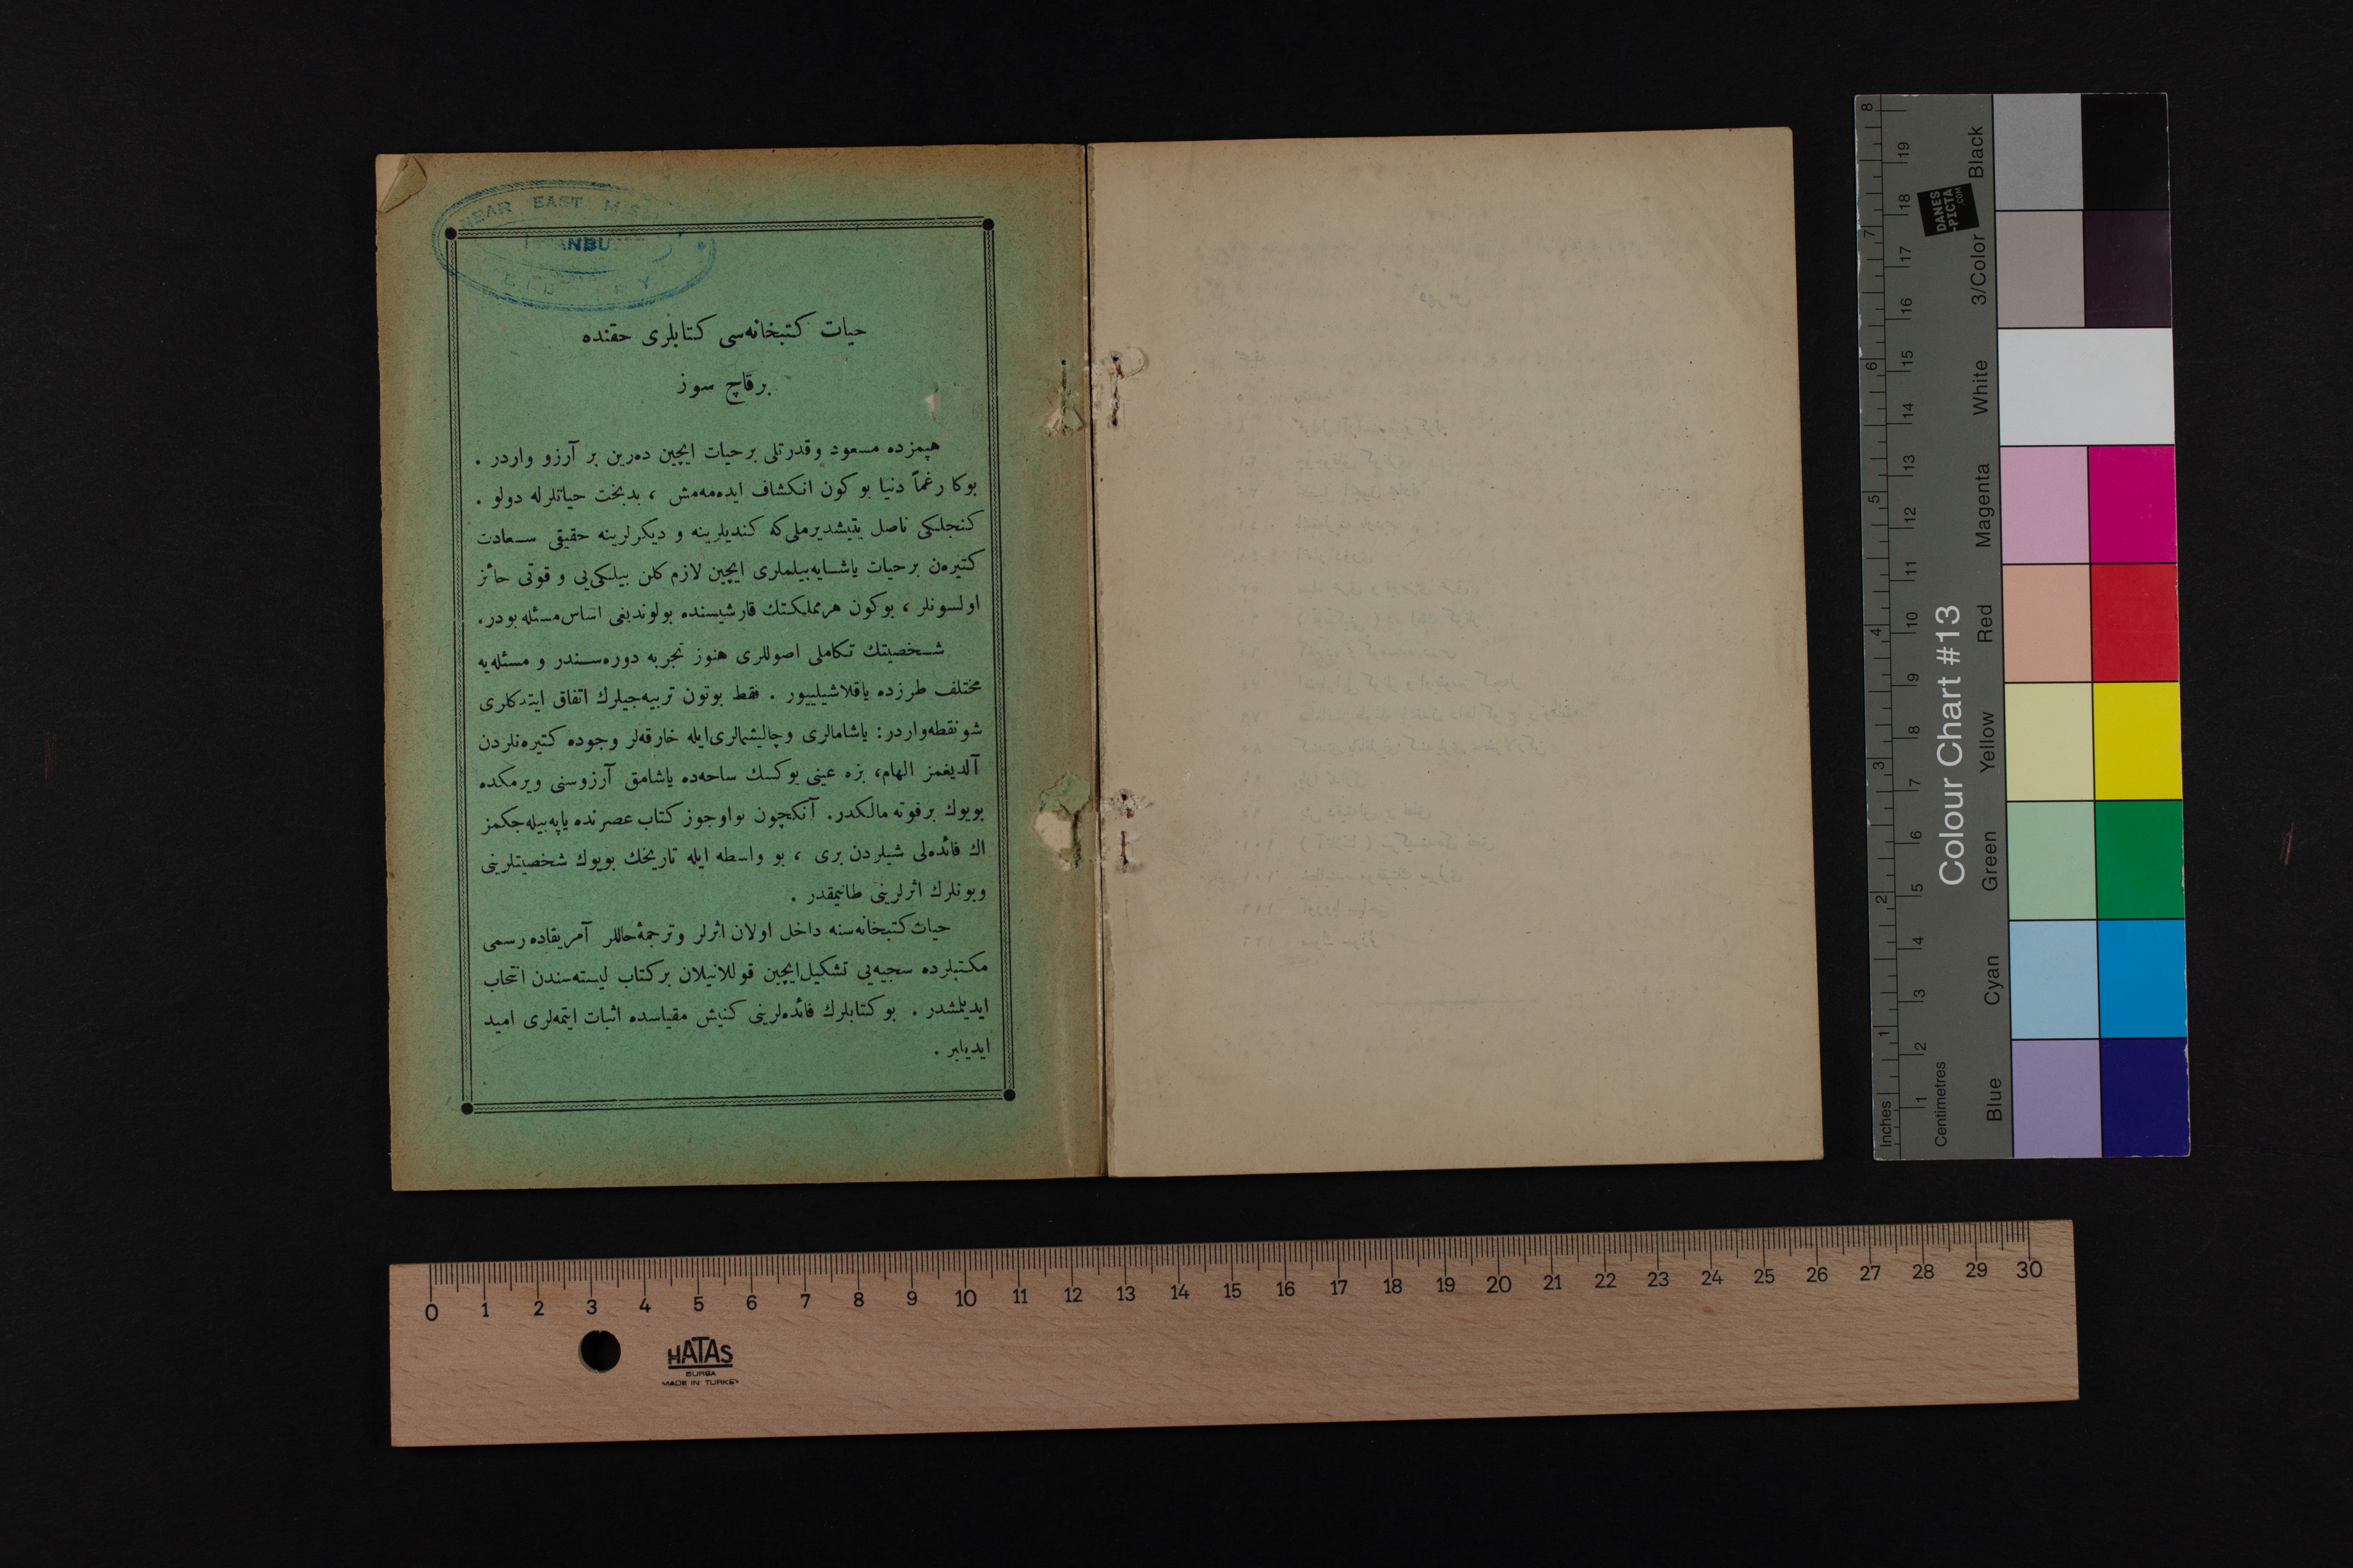 NEAR EAST MISSION
ISTANBUL
LIBRARY
حیات کتبخانه‌سی کتابلری حقنده
برقاچ سوز
هپمزده مسعود وقدرتلی برحیات ایچین ده‌رین بر آرزو واردر .
بوکا رغماً دنیا بوکون انکشاف ایده‌مه‌مش ، بدبخت حیاتلرله دولو .
کنجلکی ناصل یتیشدیرملی‌که کندیلرینه و دیکرلرینه حقیقی سعادت
کتیره‌ن برحیات یاشایه‌بیلملری ایچین لازم کلن بیلکی‌یی و قوتی حائز
اولسونلر ، بوکون هرمملکتك قارشیسنده بولوندیغی اساس‌مسئله بودر.
شخصیتك تکاملی اصوللری هنوز تجربه دوره‌سندر و مسئله‌یه
مختلف طرزده یاقلاشیلییور . فقط بوتون تربیه‌جیلرك اتفاق ایتدکلری
شونقطه‌واردر: یاشامالری وچالیشمالری‌ایله خارقه‌لر وجوده کتیره‌نلردن
آلدیغمز الهام، بزه عینی یوکسك ساحه‌ده یاشامق آرزوسنی ویرمکده
بویوك برقوته مالکدر. آنکچون بواوجوز کتاب عصرنده یاپه‌بیله‌جکمز
اك فائده‌لی شیلردن بری ، بو واسطه ایله تاریخك بویوك شخصیتلرینی
وبونلرك اثرلرینی طانیمقدر .
حیات‌کتبخانه‌سنه داخل اولان اثرلر وترجمهٔ‌حاللر آمریقاده رسمی
مکتبلرده سجیه‌یی تشکیل‌ایچین قوللانیلان برکتاب لیسته‌سندن انتخاب
ایدیلمشدر . بوکتابلرك فائده‌لرینی کنیش مقیاسده اثبات ایتمه‌لری امید
ایدیلیر .
Inches
Centimetres
Colour Chart #13
Blue Cyan Green Yellow Red Magenta White 3/Color Black
1 2 3 4 5 6 7 8
1 2 3 4 5 6 7 8 9 10 11 12 13 14 15 16 17 18 19
DANES
-PICTA
.COM
0 1 2 3 4 5 6 7 8 9 10 11 12 13 14 15 16 17 18 19 20 21 22 23 24 25 26 27 28 29 30
HATAS
BURSA
MADE IN TURKEY